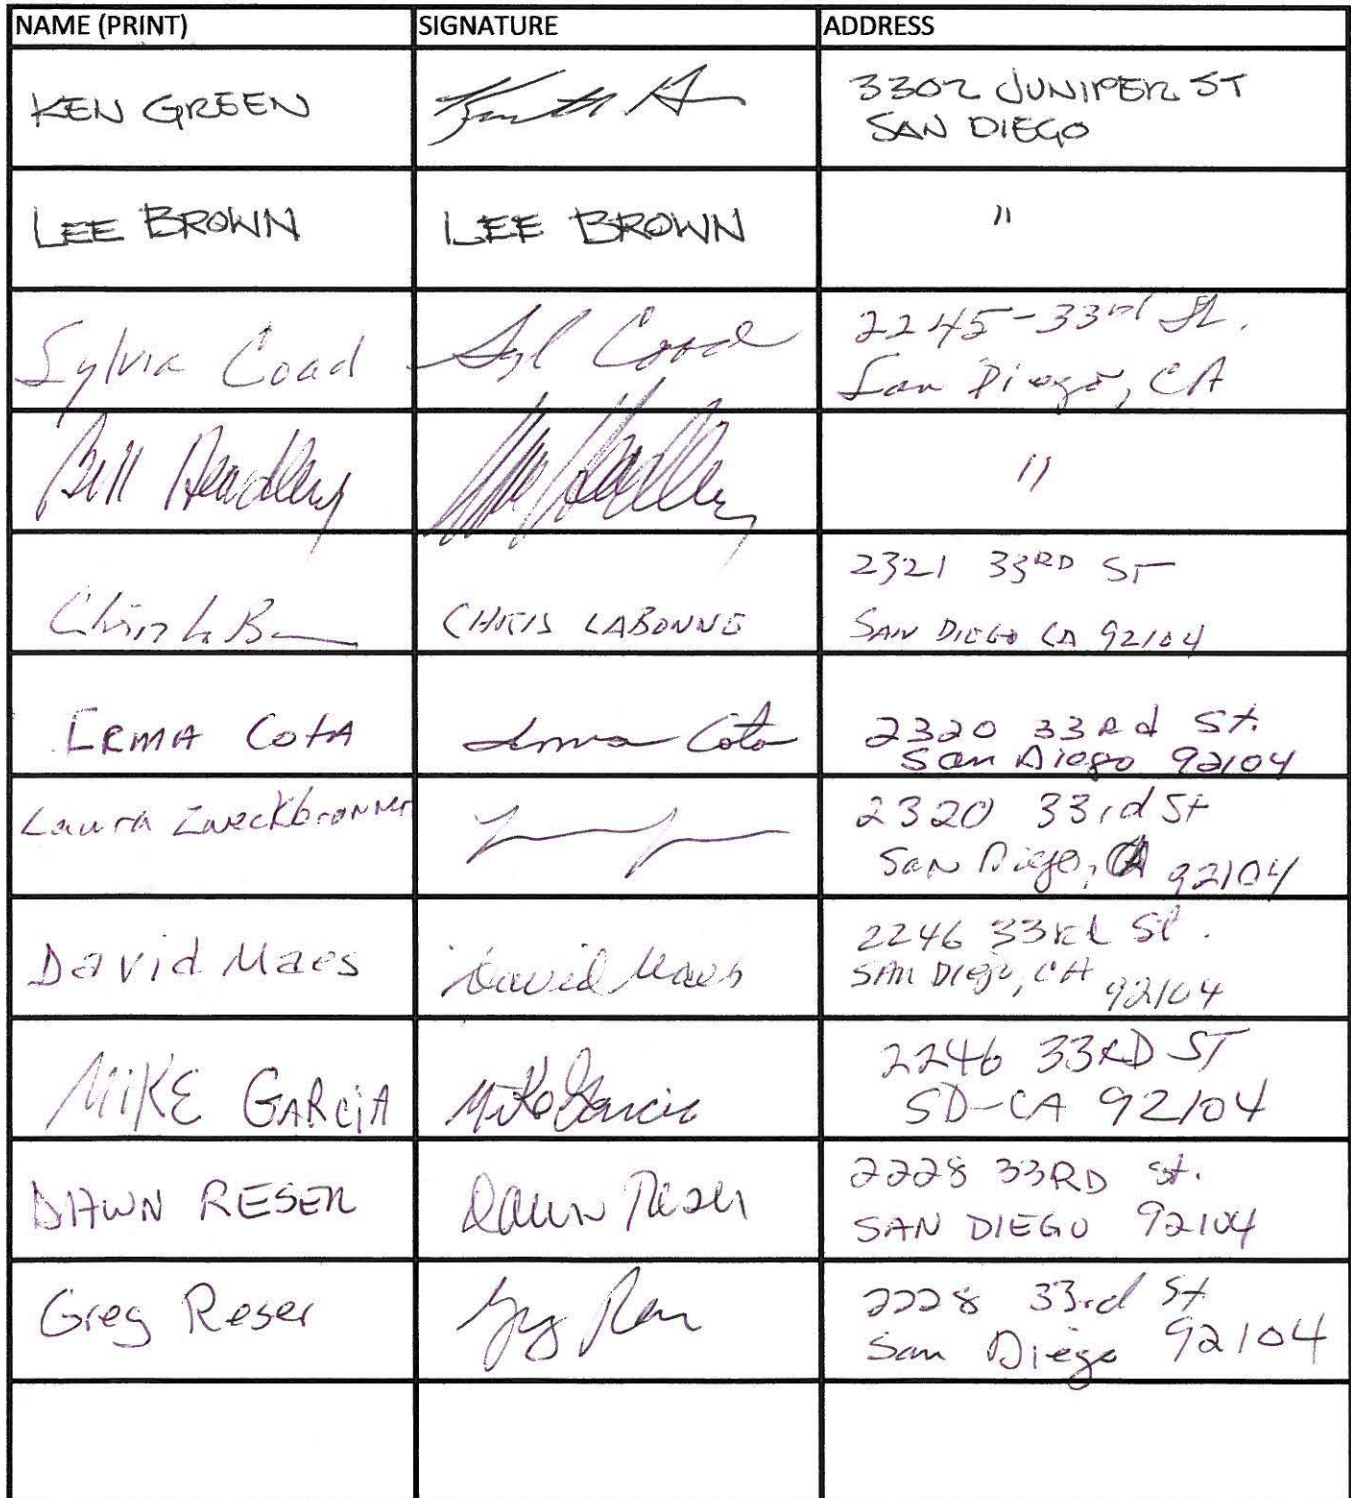 NAME (PRINT) SIGNATURE ADDRESS
KEN GREEN 3302 JUNIPER ST
SAN DIEGO
LEE BROWN LEE BROWN "
Sylvia Coad Syl Coad 2245-33rd St.
San Diego, CA
Bill Headley "
Chris LaB CHRIS LABONNE 2321 33RD ST
SAN DIEGO CA 92104
IRMA COtA Irma Cota 2320 33Rd St.
San Diego 92104
Laura Zweckbronner 2320 33rd St
San Diego, CA 92104
David Maes David Maes 2246 33rd St.
SAN DIego, CA 92104
MiKE GARCiA Mike Garcia 2246 33RD ST
SD-CA 92104
DAWN RESER Dawn Reser 2228 33RD St.
SAN DIEGO 92104
Greg Reser Greg Reser 2228 33rd St
San Diego 92104